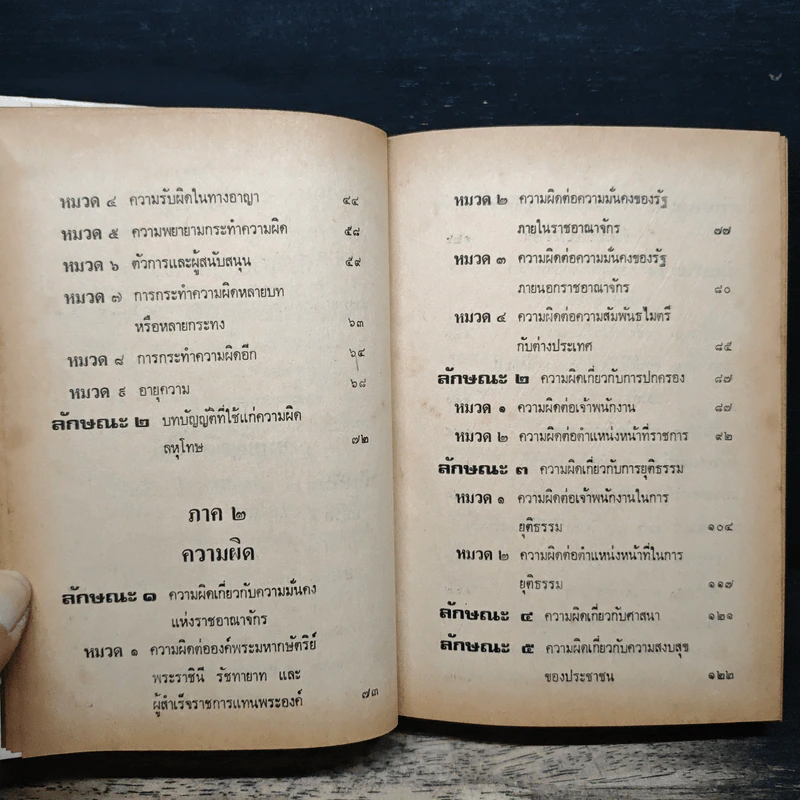 หมวด ๔ ความรับผิดในทางอาญา ๔๔
หมวด ๕ ความพยายามกระทำความผิด ๕๘
หมวด ๖ ตัวการและผู้สนับสนุน ๕๙
หมวด ๗ การกระทำความผิดหลายบท
หรือหลายกระทง ๖๓
หมวด ๘ การกระทำความผิดอีก ๖๔
หมวด ๙ อายุความ ๖๘
ลักษณะ ๒ บทบัญญัติที่ใช้แก่ความผิด
ลหุโทษ ๗๒
ภาค ๒
ความผิด
ลักษณะ ๑ ความผิดเกี่ยวกับความมั่นคง
แห่งราชอาณาจักร
หมวด ๑ ความผิดต่อองค์พระมหากษัตริย์
พระราชินี รัชทายาท และ
ผู้สำเร็จราชการแทนพระองค์ ๗๓
หมวด ๒ ความผิดต่อความมั่นคงของรัฐ
ภายในราชอาณาจักร ๗๗
หมวด ๓ ความผิดต่อความมั่นคงของรัฐ
ภายนอกราชอาณาจักร ๘๐
หมวด ๔ ความผิดต่อความสัมพันธไมตรี
กับต่างประเทศ ๘๕
ลักษณะ ๒ ความผิดเกี่ยวกับการปกครอง ๘๗
หมวด ๑ ความผิดต่อเจ้าพนักงาน ๘๗
หมวด ๒ ความผิดต่อตำแหน่งหน้าที่ราชการ ๙๒
ลักษณะ ๓ ความผิดเกี่ยวกับการยุติธรรม
หมวด ๑ ความผิดต่อเจ้าพนักงานในการ
ยุติธรรม ๑๐๔
หมวด ๒ ความผิดต่อตำแหน่งหน้าที่ในการ
ยุติธรรม ๑๑๗
ลักษณะ ๔ ความผิดเกี่ยวกับศาสนา ๑๒๑
ลักษณะ ๕ ความผิดเกี่ยวกับความสงบสุข
ของประชาชน ๑๒๒